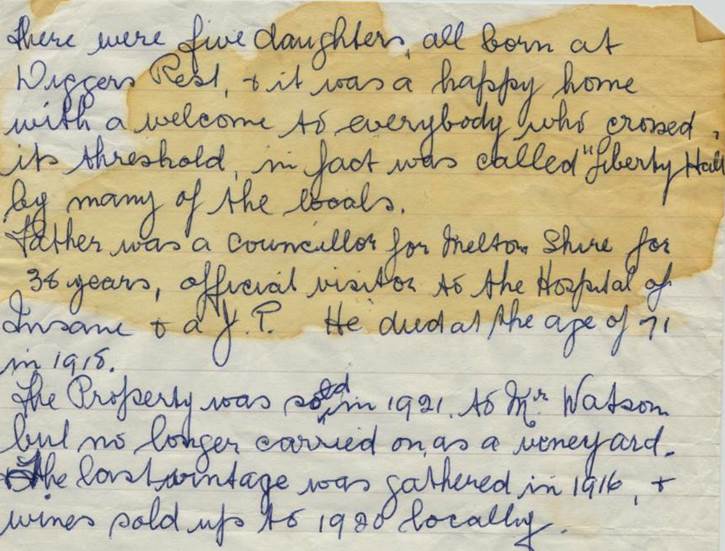 there were five daughters, all born at
Diggers Rest, & it was a happy home
with a welcome to everybody who crossed
its threshold, in fact was called "Liberty Hall
by many of the locals.
Father was a Councillor for Melton Shire for
38 years, official visitor to the Hospital of
Insane & a J.P. He died at the age of 71
in 1918.
The Property was sold in 1921. to Mr Watson
but no longer carried on as a vineyard.
The last vintage was gathered in 1916, &
wines sold up to 1920 locally.